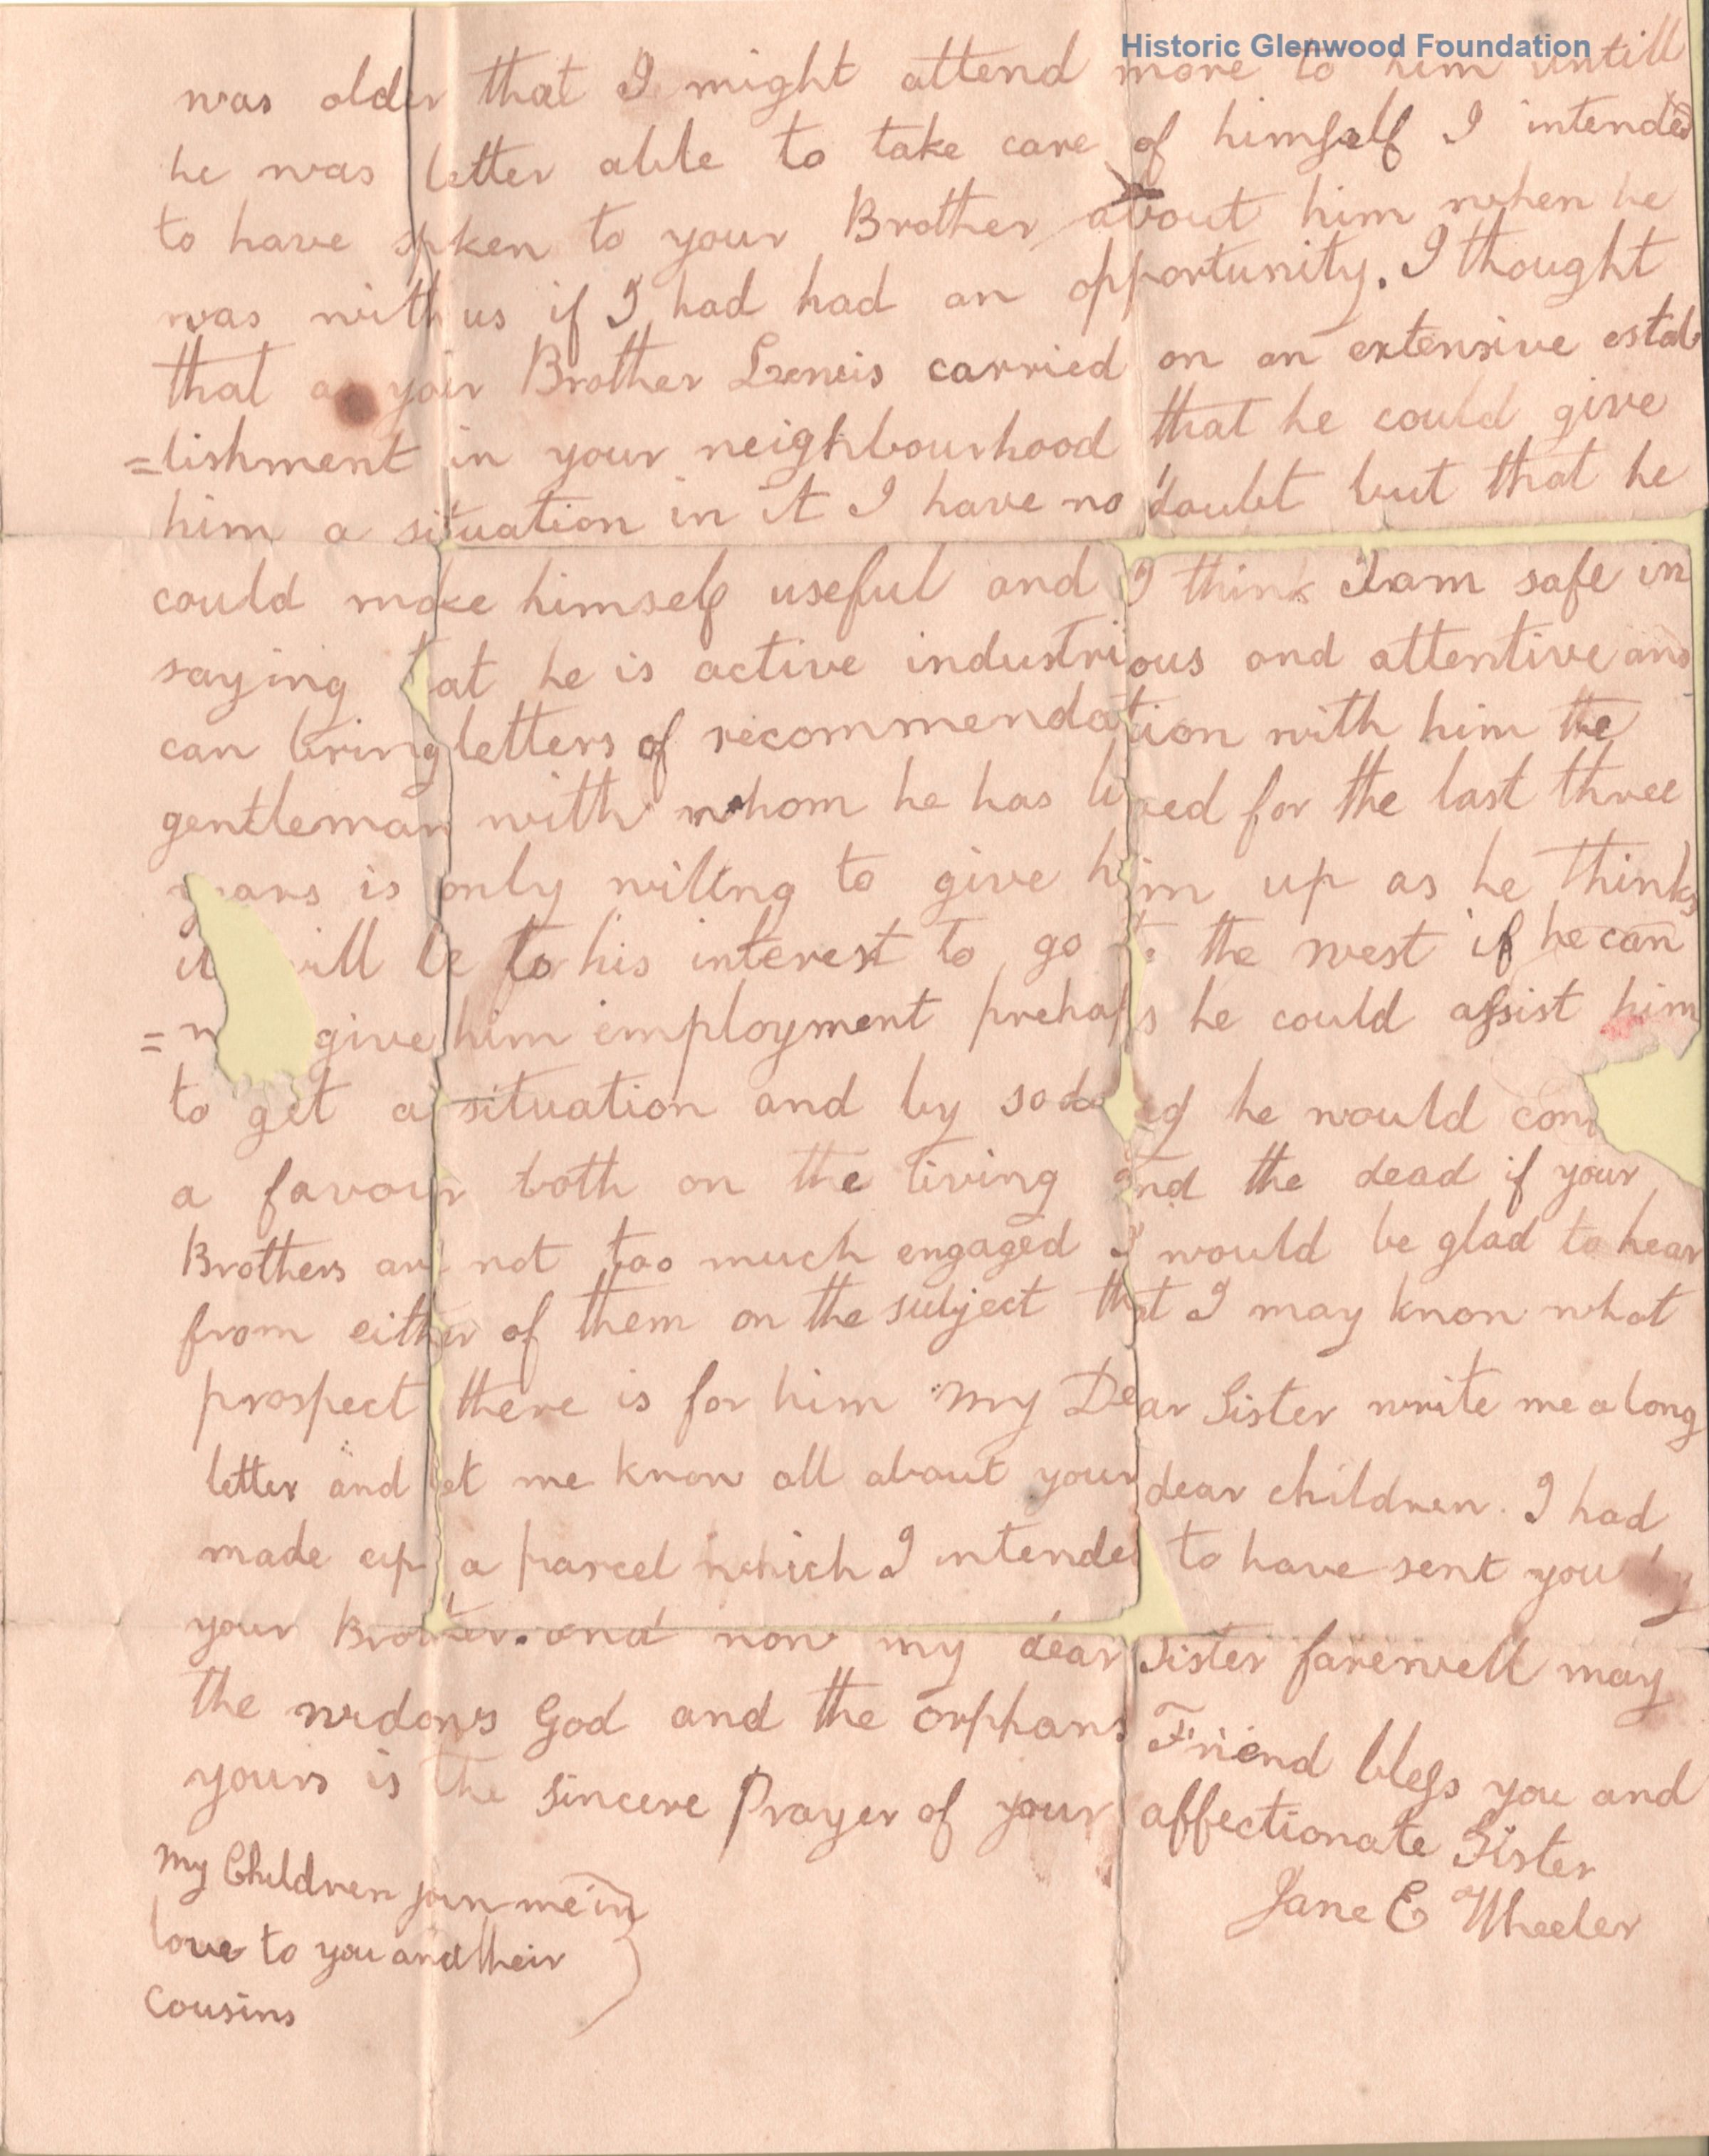 Historic Glenwood Foundation
was older that I might attend more to him untill
he was better able to take care of himself I intended
to have spken to your Brother about him when he
was with us if I had had an opportunity. I thought
that as your Brother Lewis carried on an extensive estab
=lishment in your neighbourhood that he could give
him a situation in it I have no doubt but that he
could make himself useful and I think I am safe in
saying that he is active industrious and attentive and
can bring letters of recommendation with him the
gentleman with whom he has lived for the last three
years is only willing to give him up as he thinks
it will be to his interest to go to the west if he can
= give him employment prehaps he could assist him
to get a situation and by so doing he would
a favour both on the living and the dead if your
Brothers are not too much engaged I would be glad to hear
from either of them on the subject that I may know what
prospect there is for him My Dear Sister write me a long
letter and let me know all about your dear children. I had
made up a parcel which I intended to have sent you by
your Brother. and now my dear Sister farewell may
the widows God and the orphans Friend bless you and
yours is the sincere Prayer of your affectionate Sister
Jane E Wheeler
My Children join me in
love to you and their
Cousins